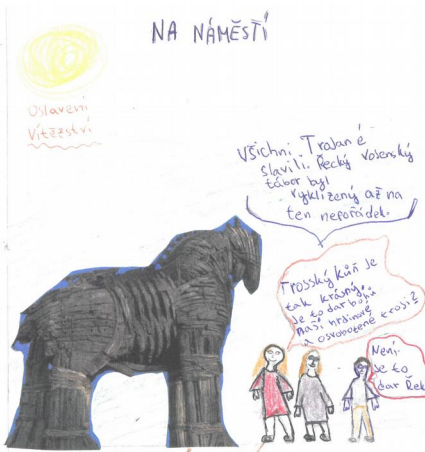 NA NÁMĚSTÍ
Oslavení
Vítězství
Všichni Trojané
slavili. Řecký vojenský
tábor byl
vyklizený až na
ten nepořádek.
Trojský kůň je
tak krásný.
Je to dar bohů
naší hrdinové
a osvobozené Troji?
Není.
Je to
dar Řek